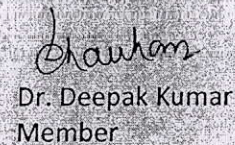 Chauhan
Dr. Deepak Kumar
Member